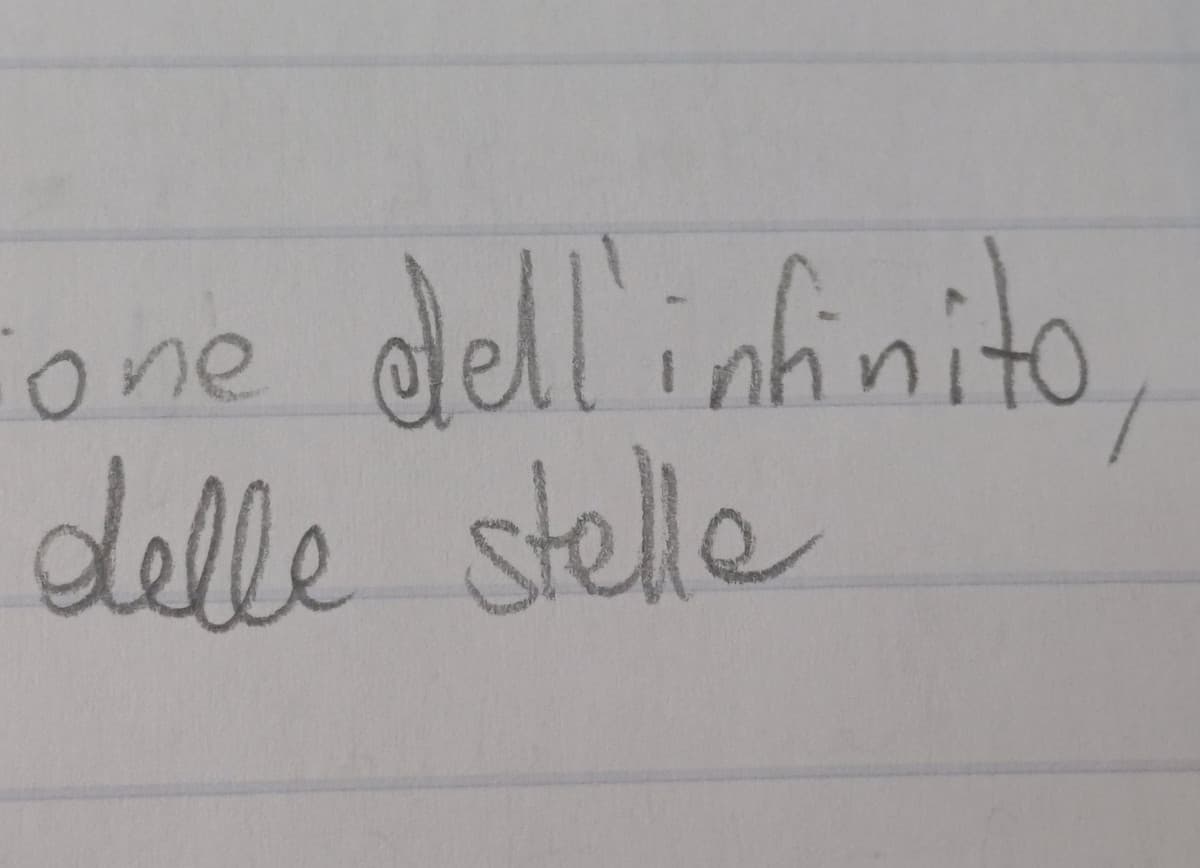 ione dell'infinito,
delle stelle